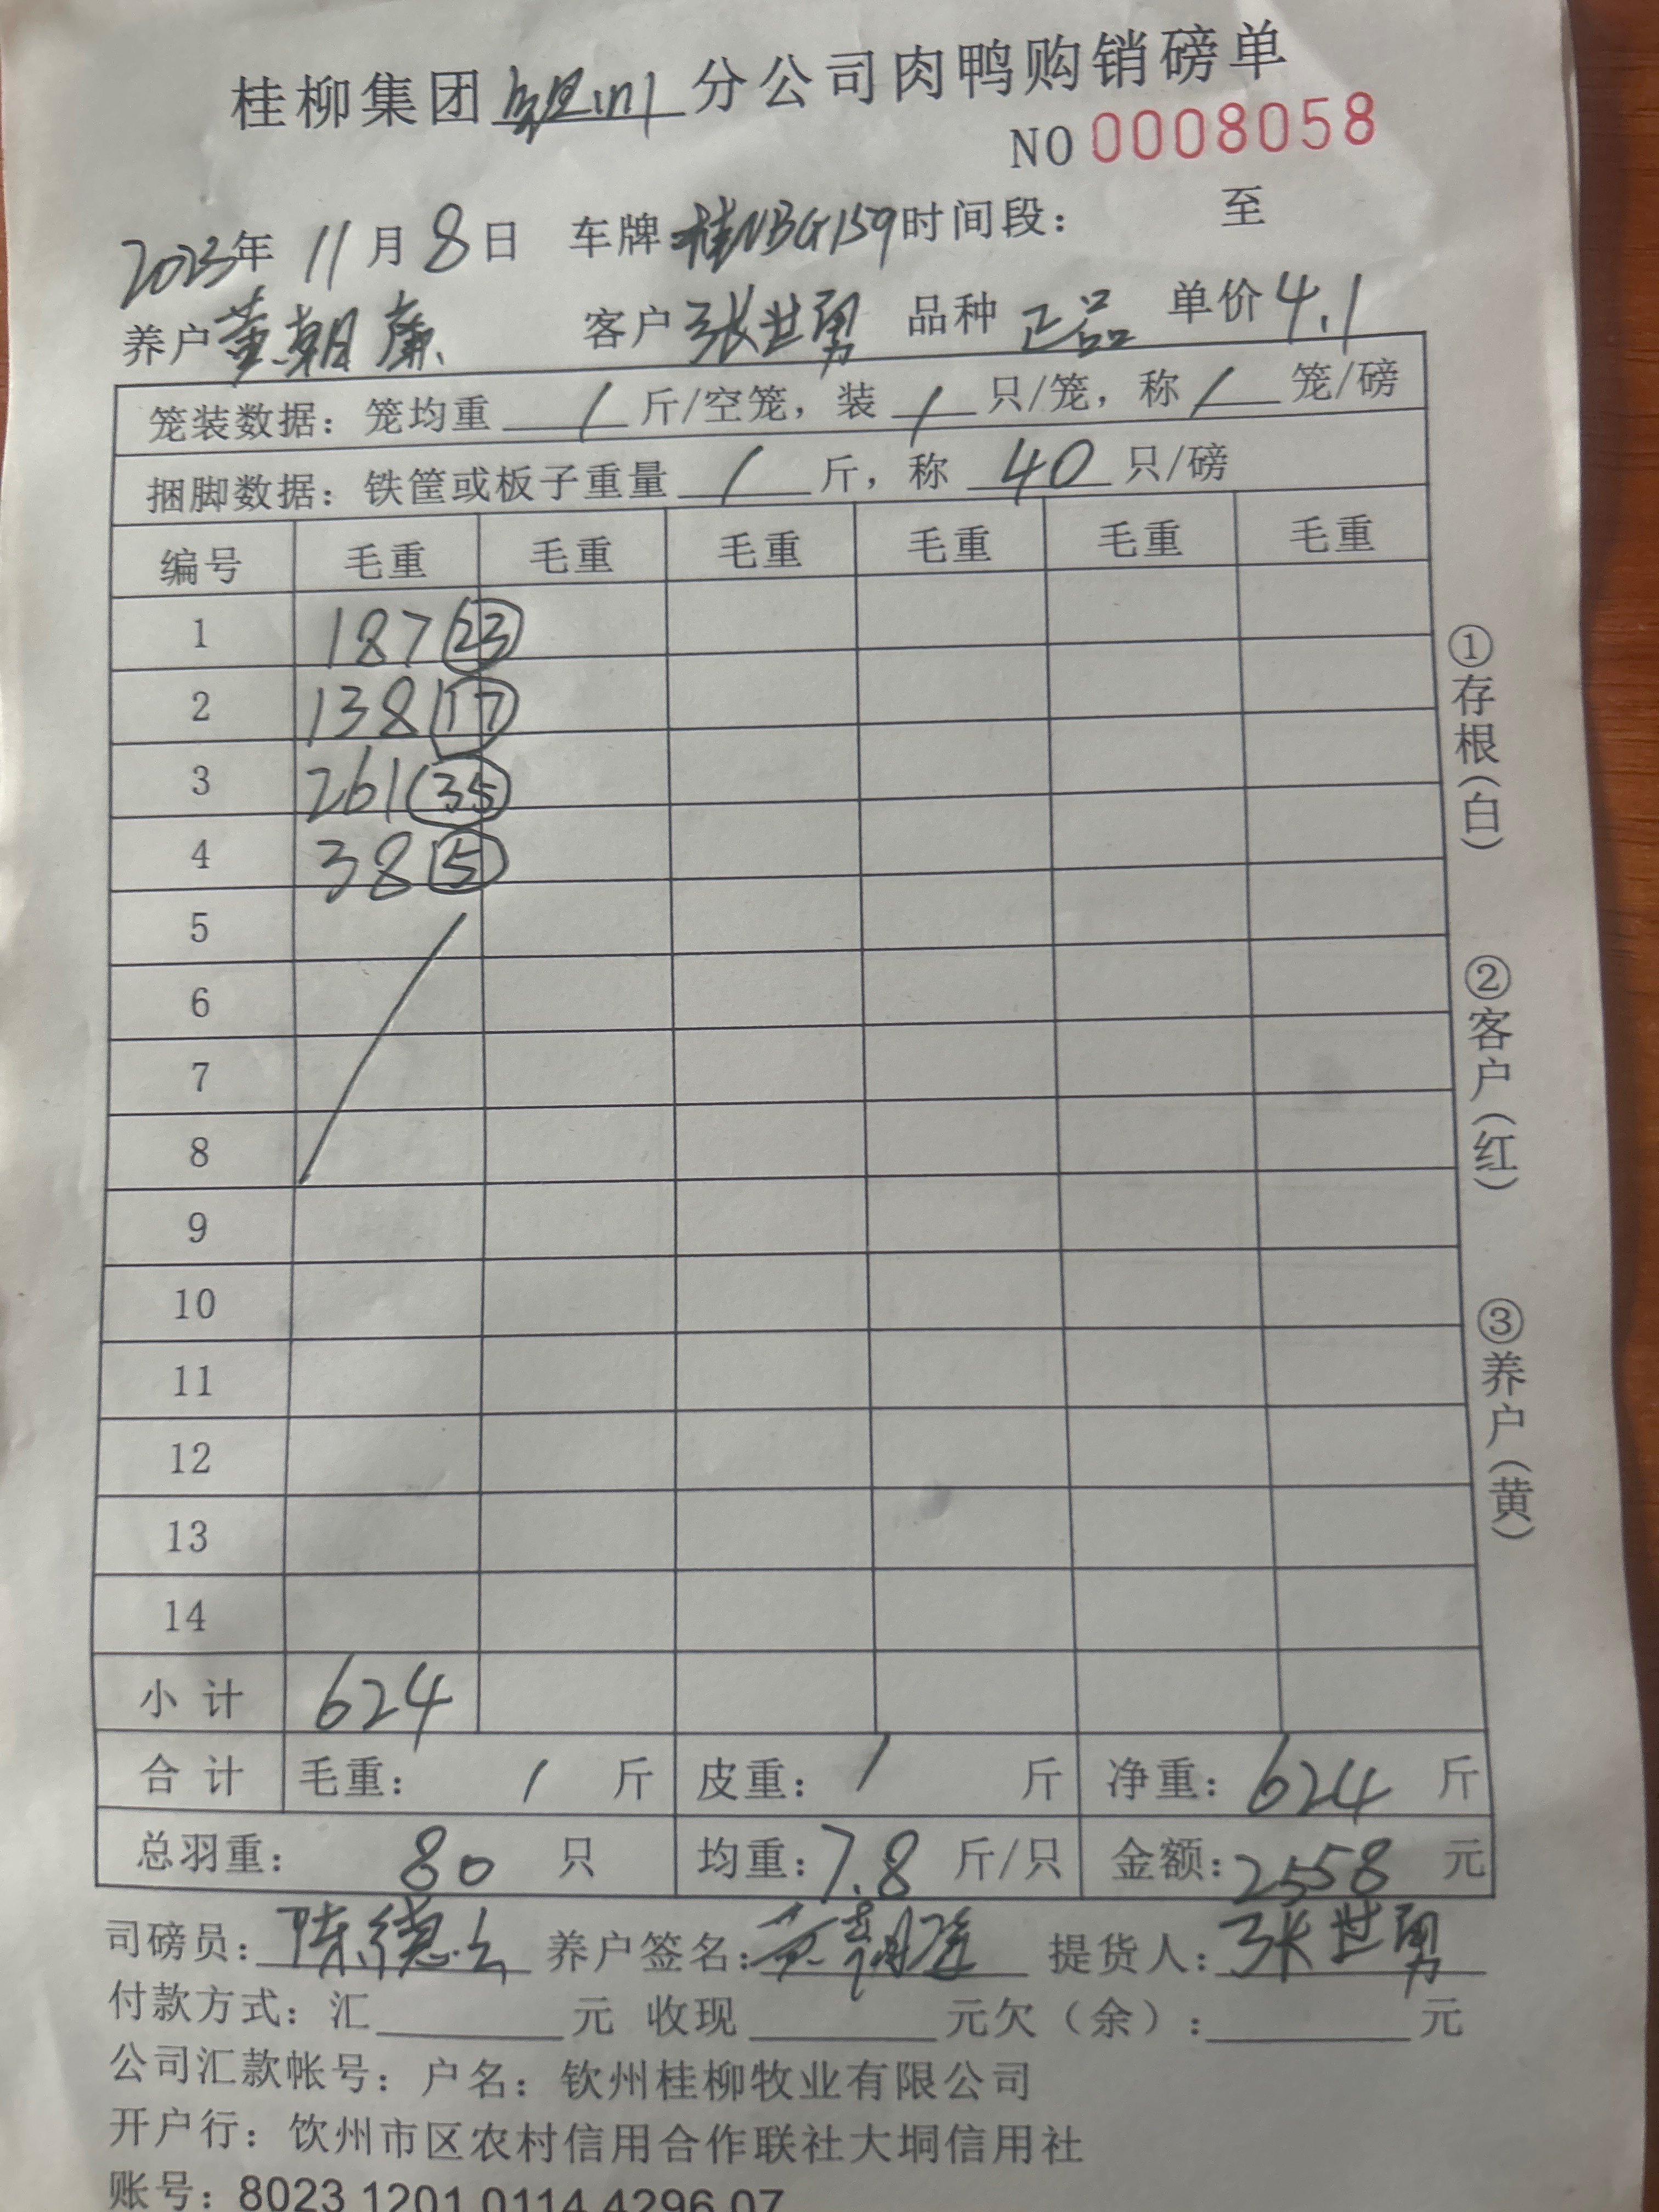 桂柳集团钦州分公司肉鸭购销磅单
NO 0008058
2023年 11月 8日 车牌 桂NBG159 时间段： 至
养户 黄朝廉 客户 张世勇 品种 正品 单价 4.1
笼装数据：笼均重 / 斤/空笼，装 / 只/笼，称 / 笼/磅
捆脚数据：铁筐或板子重量 / 斤，称 40 只/磅
编号 毛重 毛重 毛重 毛重 毛重 毛重
1 187 23
2 138 17
3 261 35
4 38 5
5
6
7
8
9
10
11
12
13
14
小计 624
合计 毛重： / 斤 皮重： / 斤 净重：624 斤
总羽重： 80 只 均重：7.8 斤/只 金额：2558 元
司磅员：陈德 养户签名： 提货人：张世勇
付款方式：汇 元 收现 元欠（余）： 元
公司汇款帐号：户名：钦州桂柳牧业有限公司
开户行：饮州市区农村信用合作联社大垌信用社
账号：8023 1201 0114 4296 07
①存根（白）
②客户（红）
③养户（黄）